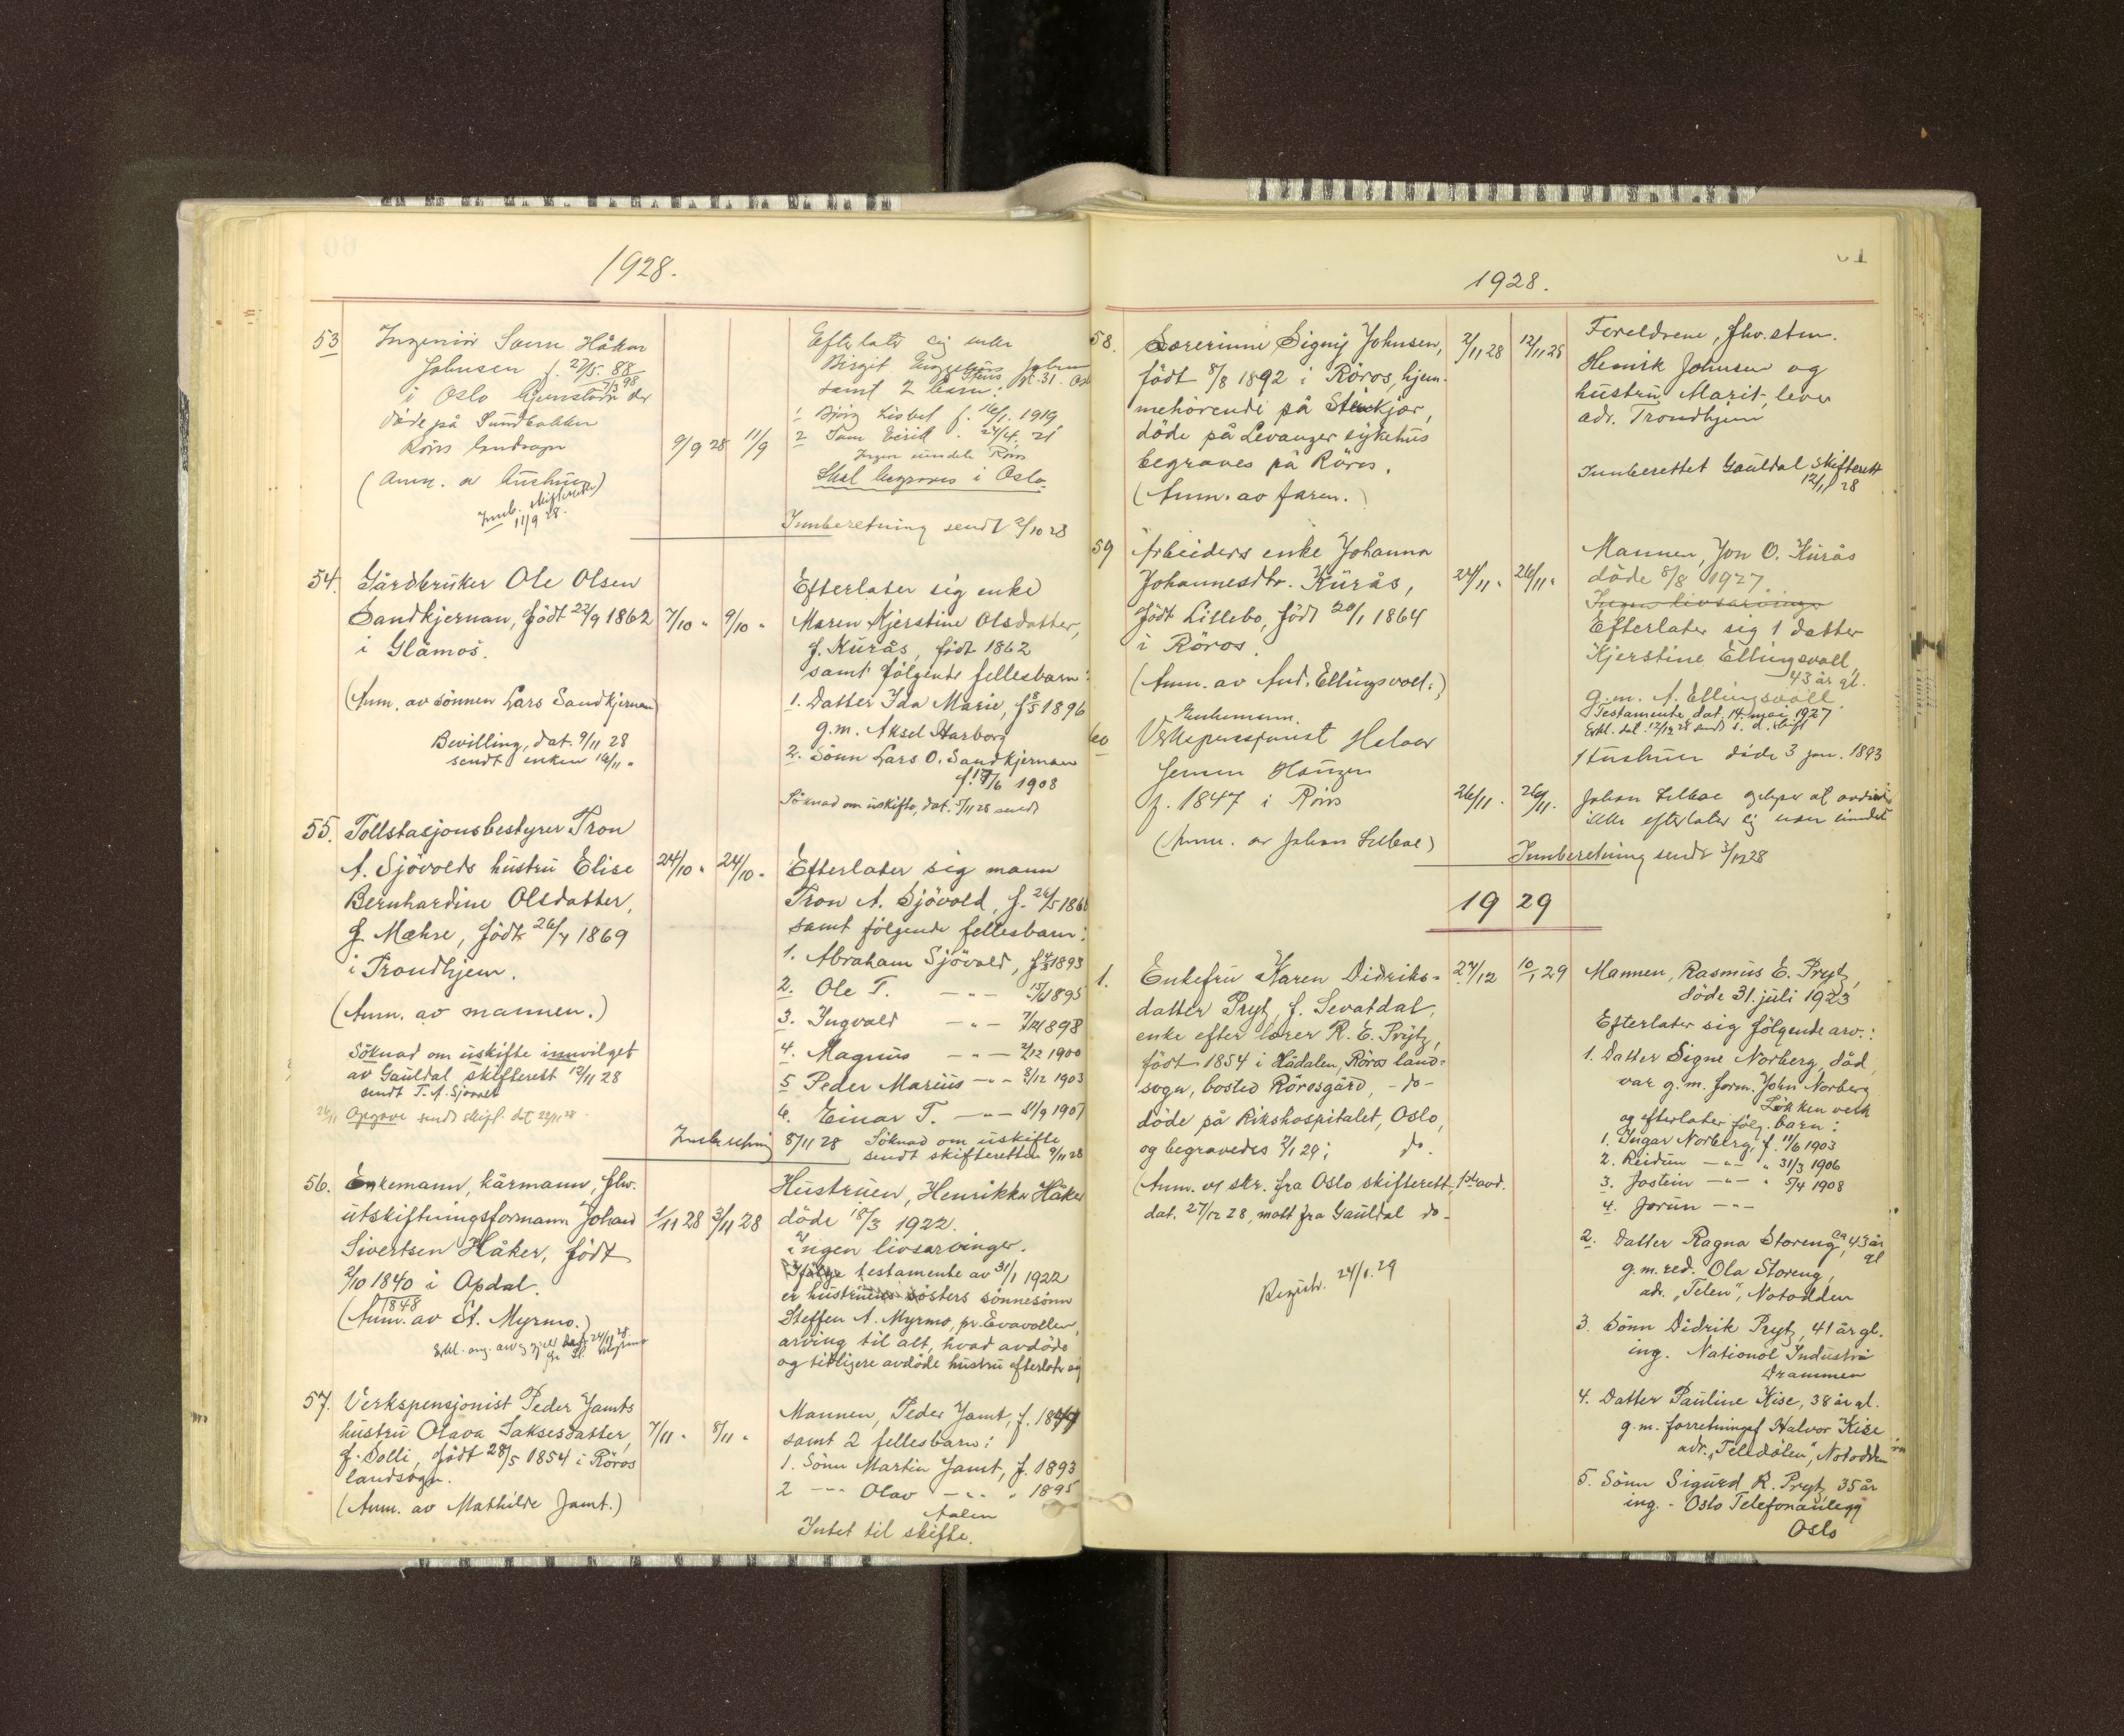 1928.
53
Ingeniør Sam Håkon
Johnsen f. 27/5 88
7/3 98
i Oslo hjemsted der
døde på Sundbakken
Røros landsogn
9/9 28 11/9
(Anm. av
Innb. skifteretten
11/9 28.
Efterlater sig enke
Birgit
samt 2 barn:
1 Lisbet f. 16/1. 1919
2 Eirik . 24/4. 21
Ingen Røros
Skal begraves i Oslo.
Innberetning sendt 2/10 28
54. Gårdbruker Ole Olsen
Sandkjernan, født 22/9 1862
i Glåmos.
7/10 " 9/10 "
(Anm. av sønnen Lars Sandkjernan)
Bevilling, dat. 9/11 28
sendt enken 16/11 "
Efterlater sig enke
Maren Kjerstine Olsdatter,
f. Kurås, født 1862
samt følgende fellesbarn:
1. Datter Ida Marie, f 8/5 1896
g.m. Aksel Harborg
2. Sønn Lars O. Sandkjernan
f. 17/6 1908
Søknad om uskifte, dat. 5/11 28 sendt
55. Tollstasjonsbestyrer Tron
A. Sjøvolds hustru Elise
Bernhardine Olsdatter,
f. Mæhre, født 26/4 1869
i Trondhjem.
24/10 " 24/10 "
(Anm. av mannen.)
Søknad om uskifte innvilget
av Gauldal skifterett 12/11 28
sendt T. A. Sjøvold
Opgave sendt skift. dat 22/11 28
Efterlater sig mann
Tron A. Sjøvold, f. 26/5 186
samt følgende fellesbarn:
1. Abraham Sjøvold, f 1893
2. Ole T. — " — 1895
3. Ingvald — " — 1898
4. Magnus — " — 2/12 1900
5 Peder Marius — " — 8/12 1903
6. Einar T. — " — 1907
Innberetning 8/11 28 Søknad om uskifte
sendt skifteretten 9/11 28
56. Enkemann, kårmann, fhv.
utskiftningsformann Johan
Sivertsen Håker, født
2/10 1840 i Opdal.
1848
1/11 28 3/11 28
(Anm. av St. Myrmo.)
Hustruen, Henrikka Håker
døde 18/3 1922.
ingen livsarvinger.
Ifølge testamente av 31/1 1922
er hustruens søsters sønnesønn
Steffen A. Myrmo, pr. Evavollen,
arving til alt, hvad avdøde
og tidligere avdøde hustru efterlater sig
57. Verkspensjonist Peder Jamts
hustru Olava Saksesdatter,
f. Dolli, født 28/5 1854 i Røros
landsogn.
7/11 " 8/11 "
(Anm. av Mathilde Jamt.)
Mannen, Peder Jamt, f. 1847
samt 2 fellesbarn:
1. Sønn Martin Jamt, f. 1893
2 — " — Olav — " — " 1895
Aalen
Intet til skifte.
1928.
58. Lærerinne Signy Johnsen,
født 8/8 1892 i Røros, hjem-
mehørende på Steinkjær,
døde på Levanger sykehus
begraves på Røros.
(Anm. av faren.)
2/11 28 12/11 28
Foreldrene, fhv. stm.
Henrik Johnsen og
hustru Marit, lever
adr. Trondhjem
Innberettet Gauldal skifterett
12/11 28
59 Arbeiders enke Johanna
Johannesdtr. Kurås,
født Lillebo, født 20/1 1864
i Røros.
(Anm. av And. Ellingsvoll.)
24/11 " 26/11 "
Mannen, Jon O. Kurås
døde 8/8 1927
Ingen livsarvinger
Efterlater sig 1 datter
Kjerstine Ellingsvoll,
43 år gl.
g.m. A. Ellingsvoll.
Testamente, dat. 14. mai 1927
60
Enkemann.
Verkspensjonist Halvor
Jensen
f. 1847 i Røros
26/11. 26/11.
(Anm. av Johan Lillebo)
Hustruen døde 3 jan. 1893
Johan Lillebo at avdøde
ikke efterlater sig
Innberetning sendt 3/12 28
1929
1. Enkefru Karen Didriks-
datter Prytz, f. Sevatdal,
enke efter lærer R. E. Prytz,
født 1854 i Hådalen, Røros land-
sogn, bosted Rørosgård, -do-
døde på Rikshospitalet, Oslo,
og begravedes 2/1 29 i do.
(Anm. av skr. fra Oslo skifterett, 1ste avd.
dat. 27/12 28, mott fra Gauldal do-
27/12 10/1 29
Registr. 24/1. 29
Mannen, Rasmus E. Prytz,
døde 31. juli 1923
Efterlater sig følgende arv.:
1. Datter Signe Norberg, død,
var g.m. form. John Norberg
Løkken verk
og efterlater følg. barn:
1. Ingar Norberg, f. 11/6 1903
2. Reidun — " — " 31/3 1906
3. Jostein — " — " 5/4 1908
4. Jorun — " —
2. Datter Ragna Storeng, ca 43 år
gl
g.m. red. Ola Storeng,
adr. "Telen", Notodden
3. Sønn Didrik Prytz, 41 år gl.
ing. National Industri
Drammen
4. Datter Pauline Kise, 38 år gl.
g.m. forretningsf Halvor Kise
adr. "Teledølen", Notodden
5. Sønn Sigurd R. Prytz, 35 år
ing. - Oslo Telefonanlegg
Oslo